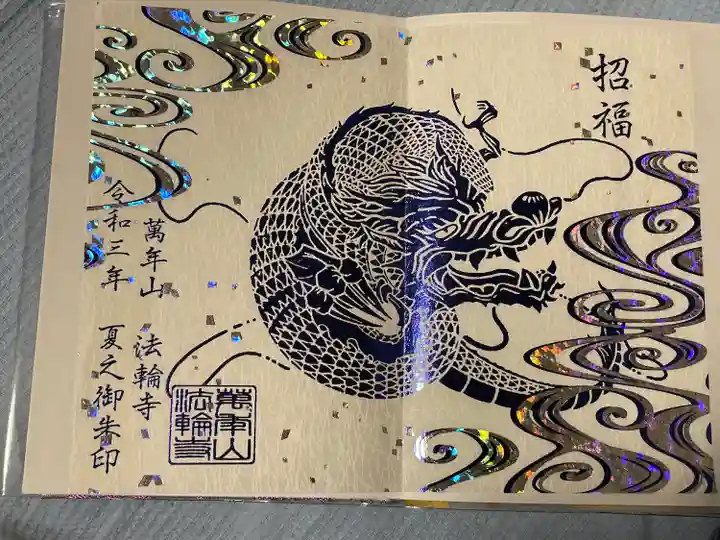 招福
萬年山
法輪寺
令和三年
夏之御朱印
萬年山
法輪寺